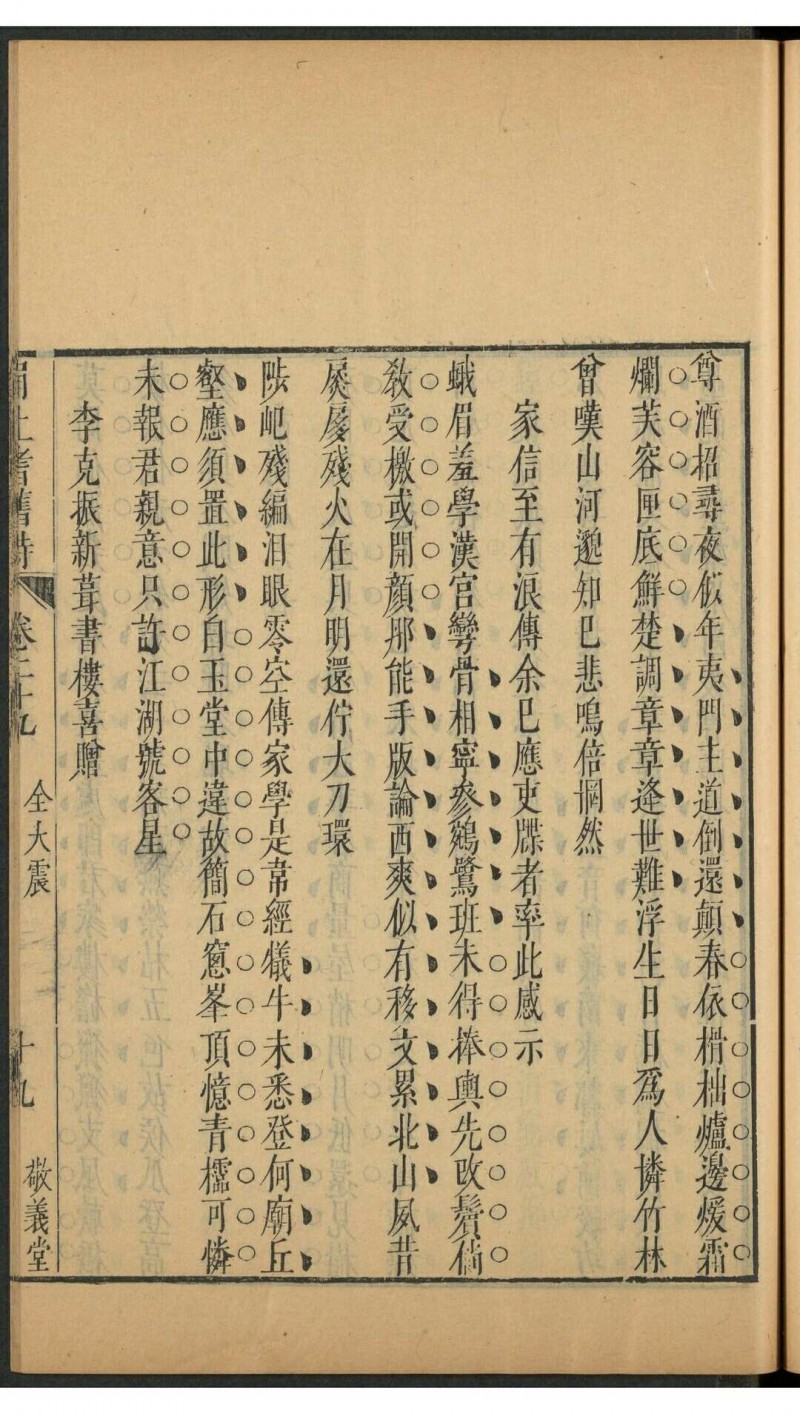 尊酒招尋夜似年夷門主道倒還顛春依榾柮爐邊煖霜
爛芙容匣底鮮楚調章章逢世難浮生日日爲人憐竹林
曾嘆山河邈知己悲鳴倍惘然
家信至有浪傳余已應吏牒者率此感示
蛾眉羞學漢宫彎骨相寧參鵷鷺班未得捧輿先改鬢倘
教受檄或開顔那能手版論西爽似有移文累北山夙昔
扊扅殘火在月明還佇大刀環
陟屺殘編泪眼零空傳家學是韋經犧牛未悉登何廟丘
壑應須置此形白玉堂中違故簡石窻峯頂憶青櫺可憐
未報君親意只許江湖號客星
李克振新葺書樓喜贈
上耆舊詩 卷二十九 全大震 十九 敬義堂